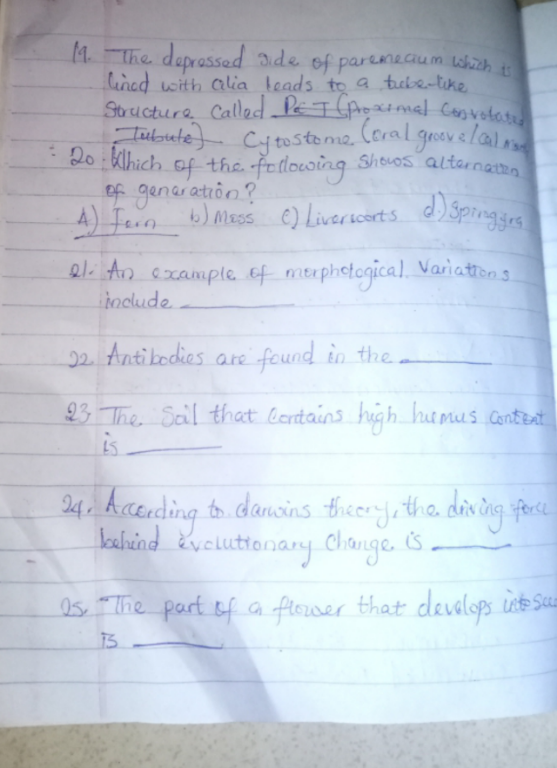 19. The depressed side of paremecium which is
lined with cilia leads to a tube-like
structure called PCT (Proximal Convoluted
Tubule) Cytostome (oral groove/
20. Which of the following shows alternation
of generation?
A) Fern b) Moss c) Liverworts d) Spirogyra
21. An example of morphological Variations
include
22. Antibodies are found in the
23. The Soil that contains high humus content
is
24. According to darwins theory, the driving force
behind evolutionary change is
25. The part of a flower that develops into
is